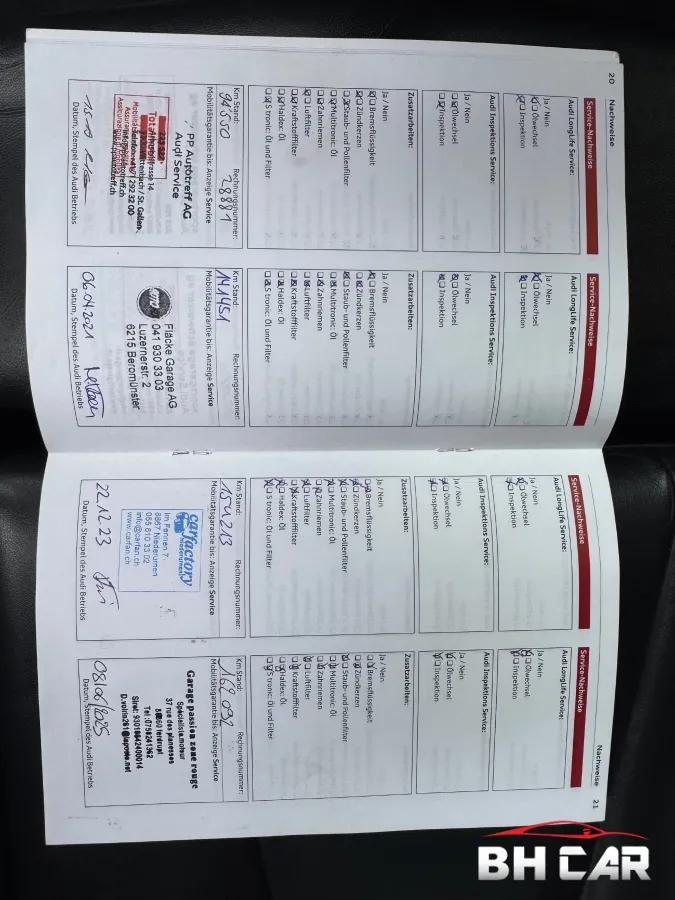 20
Nachweise
Service-Nachweise
Audi LongLife Service:
Ja / Nein
Ölwechsel
Inspektion
Audi Inspektions Service:
Ja / Nein
Ölwechsel
Inspektion
Zusatzarbeiten:
Ja / Nein
Bremsflüssigkeit
Zündkerzen
Staub- und Pollenfilter
Multitronic: Öl
Zahnriemen
Luftfilter
Kraftstofffilter
Haldex: Öl
S tronic: Öl und Filter
Km Stand: Rechnungsnummer:
94550 28881
Mobilitätsgarantie bis: Anzeige Service
PP Autotreff AG
Audi Service
Datum, Stempel des Audi Betriebs
Service-Nachweise
Audi LongLife Service:
Ja / Nein
Ölwechsel
Inspektion
Audi Inspektions Service:
Ja / Nein
Ölwechsel
Inspektion
Zusatzarbeiten:
Ja / Nein
Bremsflüssigkeit
Zündkerzen
Staub- und Pollenfilter
Multitronic: Öl
Zahnriemen
Luftfilter
Kraftstofffilter
Haldex: Öl
S tronic: Öl und Filter
Km Stand: Rechnungsnummer:
141451
Mobilitätsgarantie bis: Anzeige Service
Fläcke Garage AG
041 930 33 03
Luzernerstr. 2
6215 Beromünster
06.04.2021
Datum, Stempel des Audi Betriebs
Service-Nachweise
Audi LongLife Service:
Ja / Nein
Ölwechsel
Inspektion
Audi Inspektions Service:
Ja / Nein
Ölwechsel
Inspektion
Zusatzarbeiten:
Ja / Nein
Bremsflüssigkeit
Zündkerzen
Staub- und Pollenfilter
Multitronic: Öl
Zahnriemen
Luftfilter
Kraftstofffilter
Haldex: Öl
S tronic: Öl und Filter
Km Stand: Rechnungsnummer:
154213
Mobilitätsgarantie bis: Anzeige Service
carfactory
niederurnen
8867 Niederurnen
055 610 33 02
info@carfan.ch
www.carfan.ch
22.12.23
Datum, Stempel des Audi Betriebs
Nachweise
21
Service-Nachweise
Audi LongLife Service:
Ja / Nein
Ölwechsel
Inspektion
Audi Inspektions Service:
Ja / Nein
Ölwechsel
Inspektion
Zusatzarbeiten:
Ja / Nein
Bremsflüssigkeit
Zündkerzen
Staub- und Pollenfilter
Multitronic: Öl
Zahnriemen
Luftfilter
Kraftstofffilter
Haldex: Öl
S tronic: Öl und Filter
Km Stand: Rechnungsnummer:
169 091
Mobilitätsgarantie bis: Anzeige Service
Garage passion zone rouge
Spécialiste moteur
37 rue des planesses
Tel:0758241362
Siret: 93018642400014
Datum, Stempel des Audi Betriebs
BH CAR